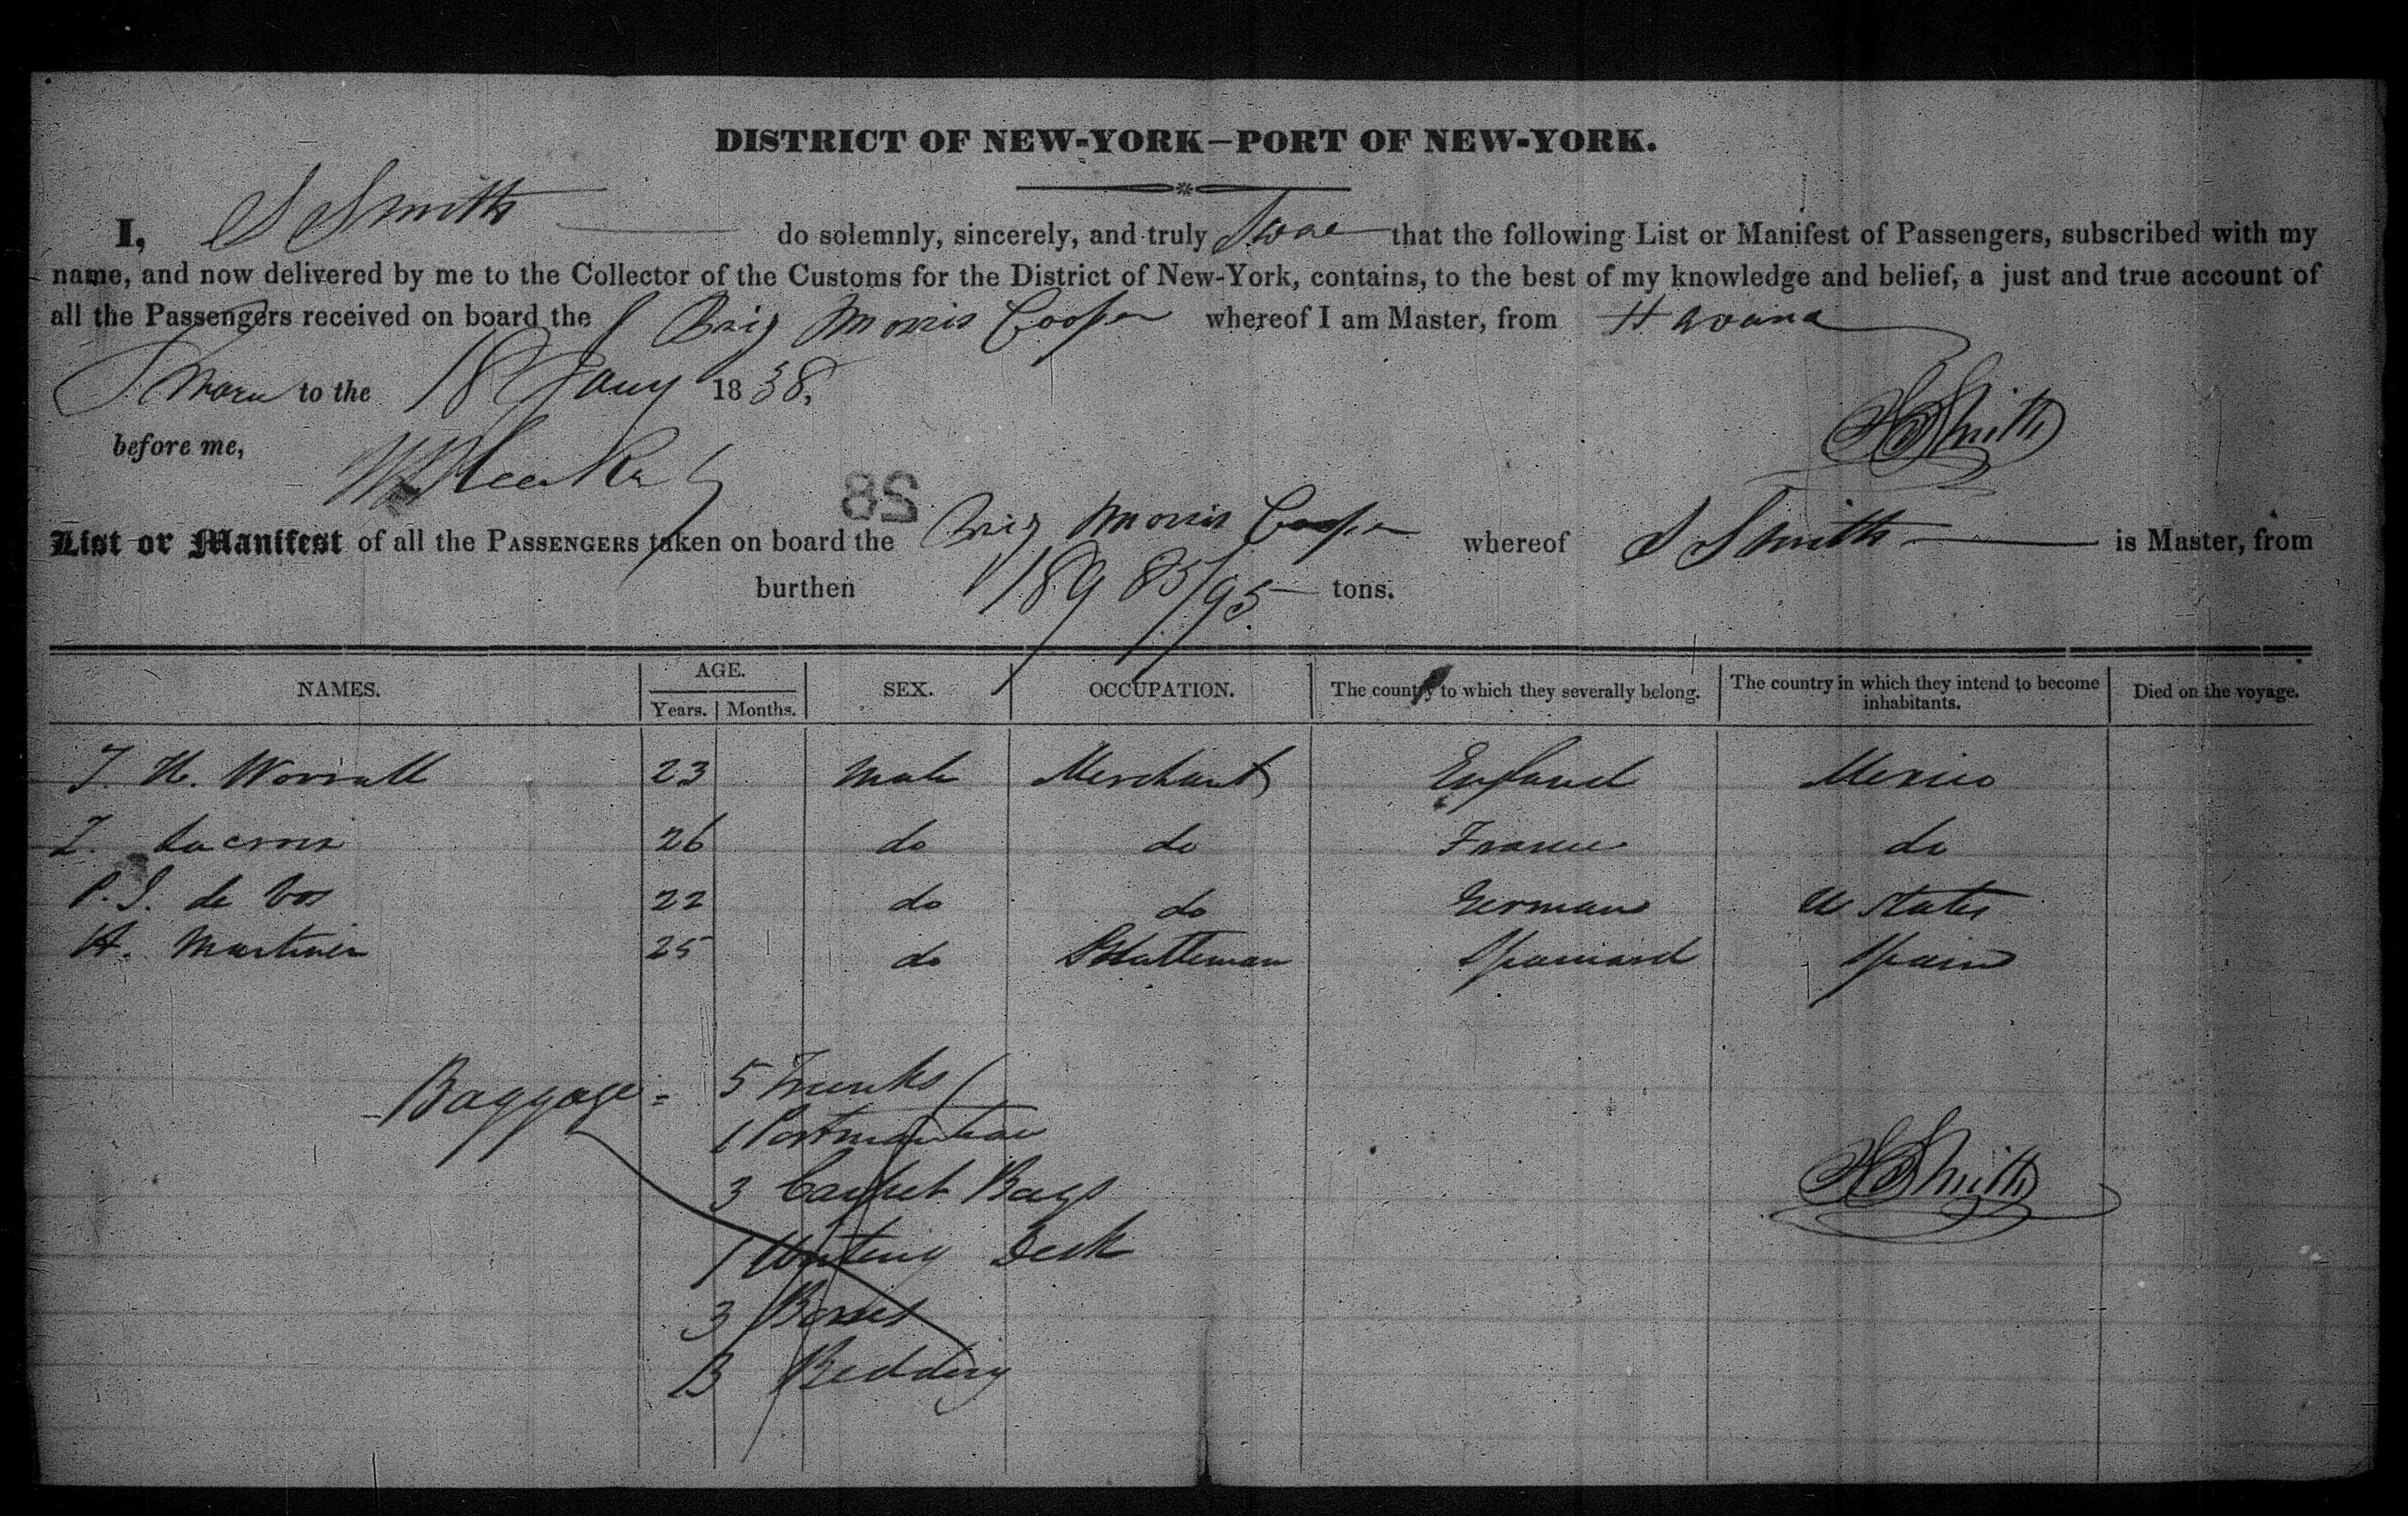 DISTRICT OF NEW-YORK—PORT OF NEW-YORK.
I, S Smith do solemnly, sincerely, and truly Swear that the following List or Manifest of Passengers, subscribed with my
name, and now delivered by me to the Collector of the Customs for the District of New-York, contains, to the best of my knowledge and belief, a just and true account of
all the Passengers received on board the Brig Morris Cooper whereof I am Master, from Havana
Sworn to the 18 Jany 1838,
before me,
S Smith
28
List or Manifest of all the PASSENGERS taken on board the Brig Morris Cooper whereof S Smith is Master, from
burthen 189 85/95 tons.
NAMES. AGE. Years. Months. SEX. OCCUPATION. The country to which they severally belong. The country in which they intend to become inhabitants. Died on the voyage.
T. H. Worrall 23 Male Merchant England Mexico
Lacroix 26 do do France do
P. J. de Vos 22 do do German U States
A. Martinez 25 do Spaniard Spain
Baggage = 5 Trunks
1 Portmanteau
3 Carpet Bags
1 Writing Desk
3 Boxes
3 Bedding
S Smith